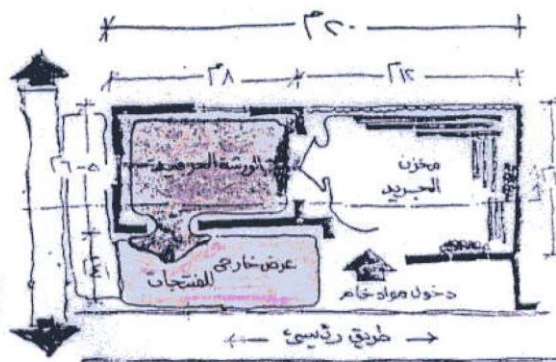 ٢٠م
٨م
١٢م
الورشة
مخزن
الجريد
عرض خارجي
للمنتجات
دخول مواد خام
طريق رئيسي